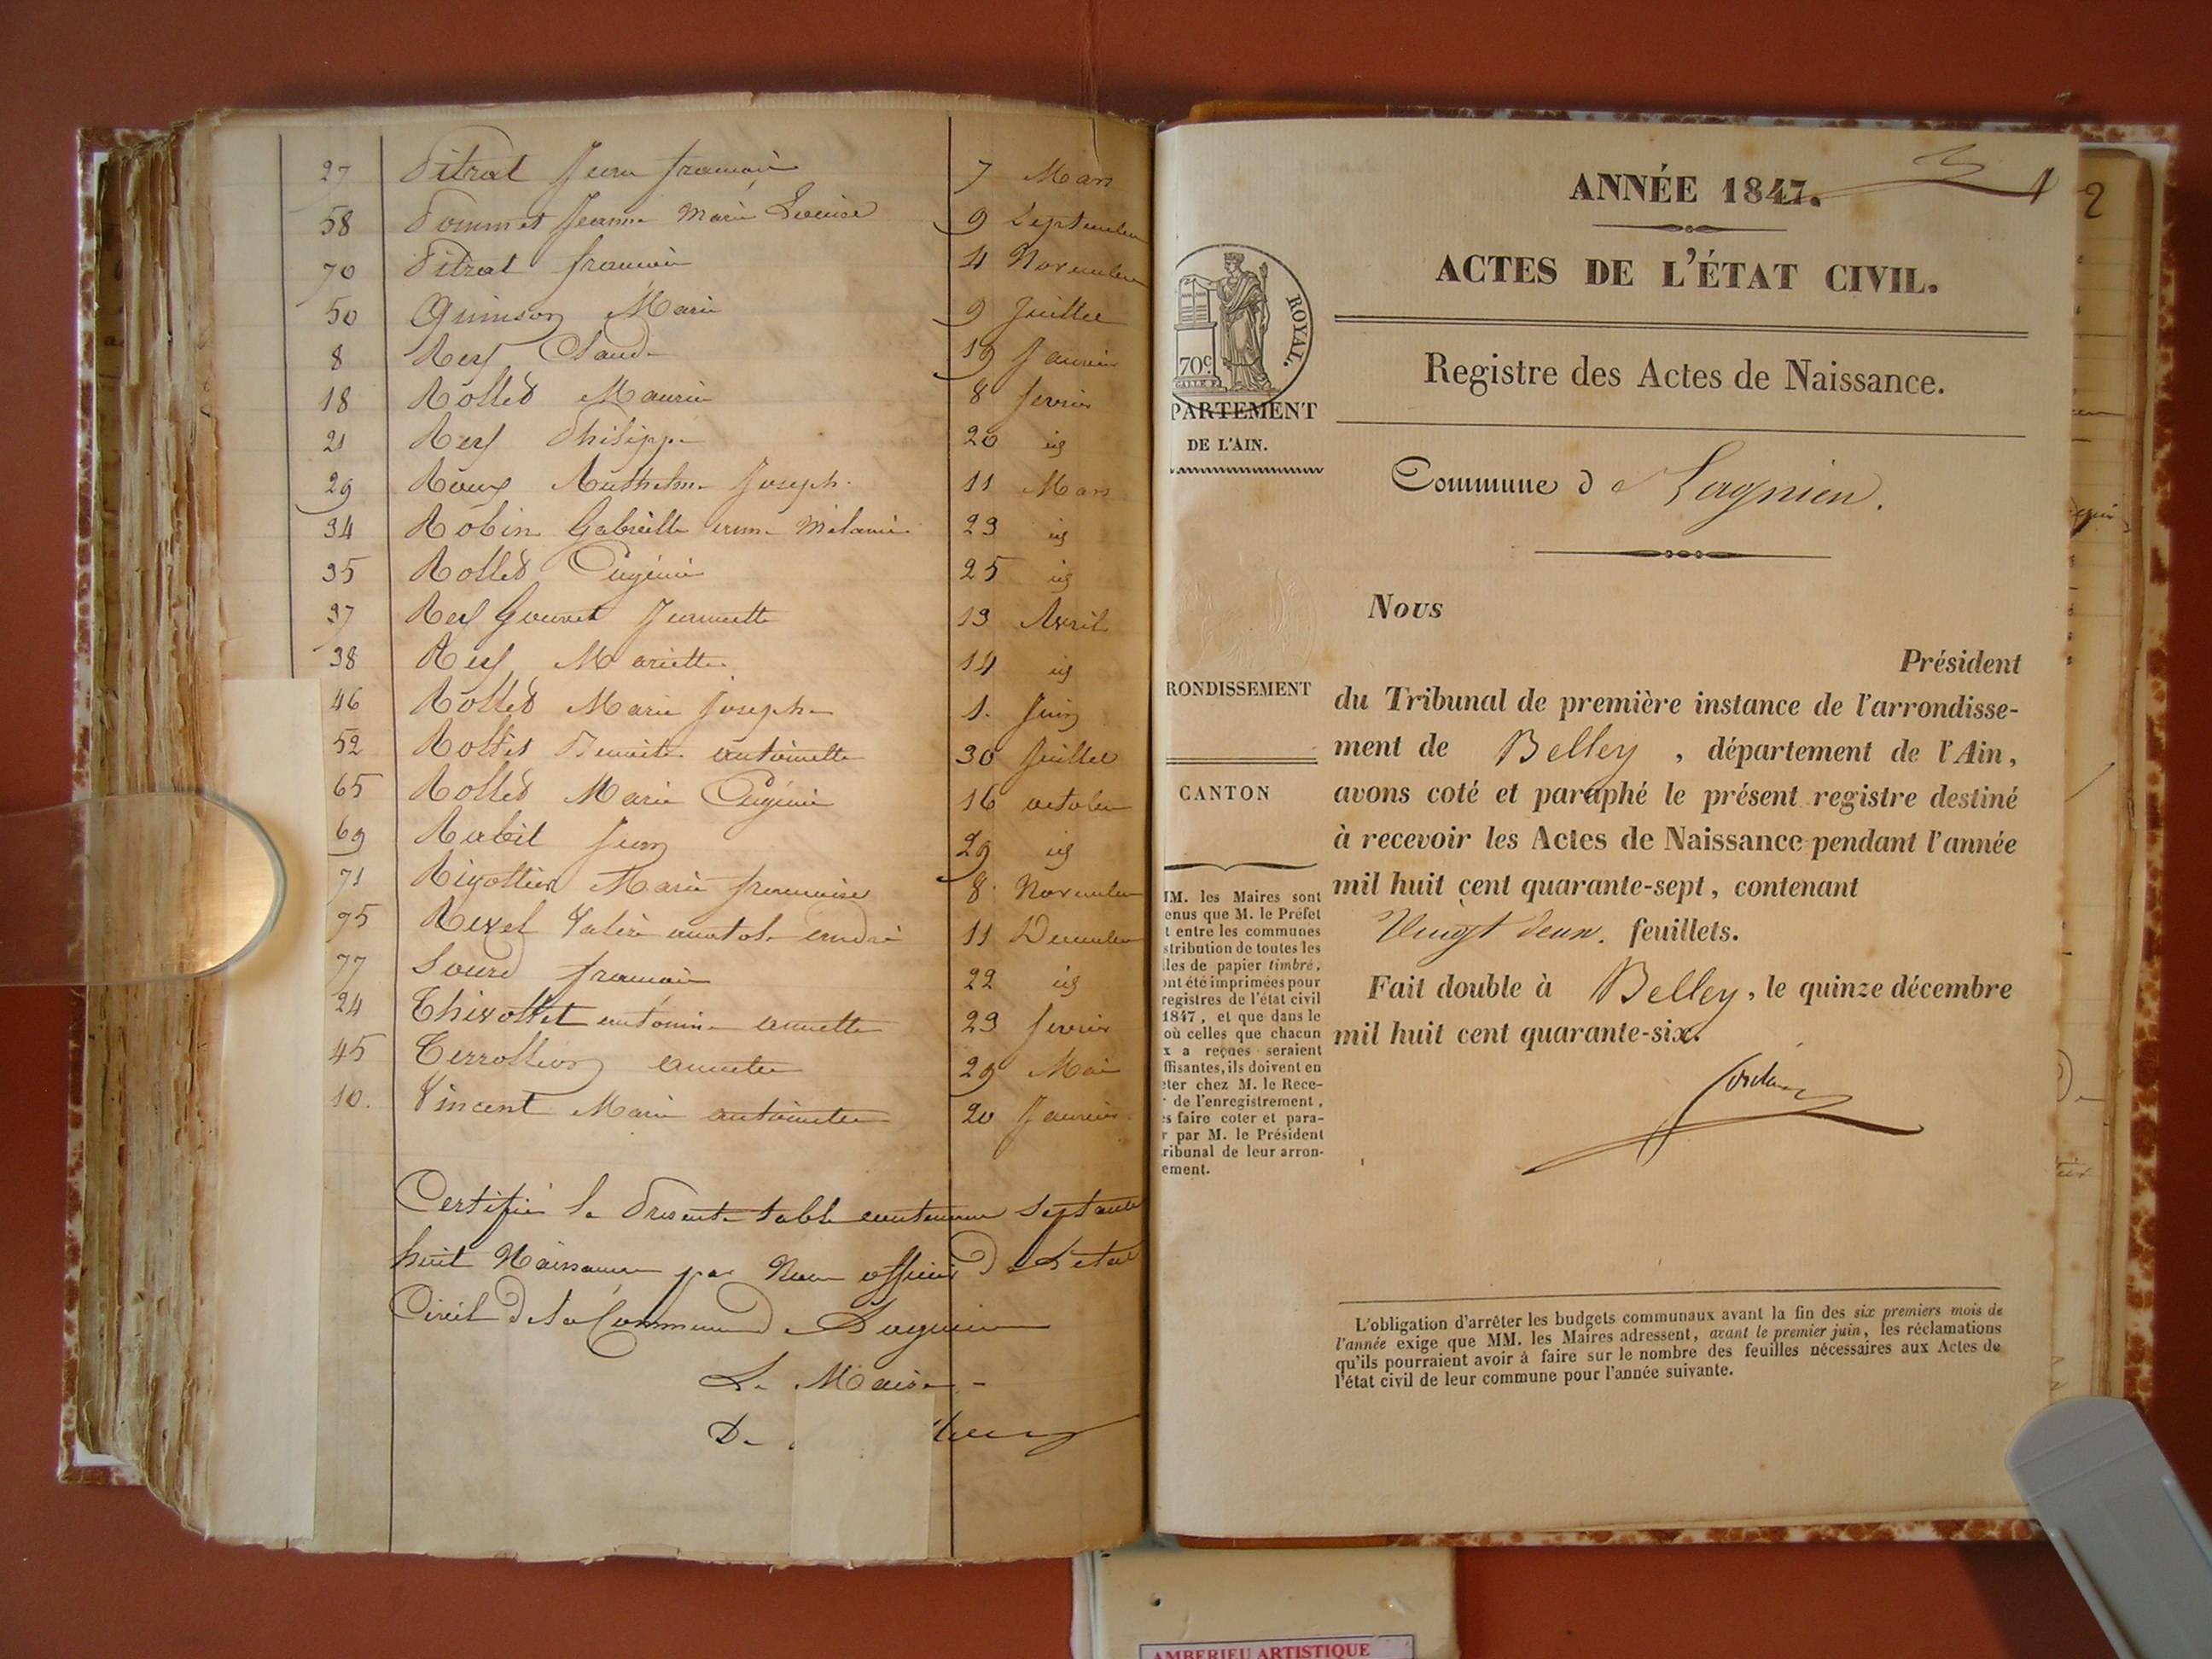 27 Pitrat Jean François 7 Mars
58 Pommet Jeanne Marie Louise 9 Septembre
70 Pitrat François 4 Novembre
50 Quinson Marie 9 Juillet
8 Rey Claude 19 Janvier
18 Rollet Maurice 8 février
21 Rey Philippe 20 id
29 Roux Anthelme Joseph 11 Mars
34 Robin Gabrielle Mélanie 23 id
35 Rollet Eugénie 25 id
37 Rey Gourret Jeannette 13 Avril
38 Rey Mariette 14 id
46 Rollet Marie Joseph 1. Juin
52 Rollet Benoite antoinette 30 Juillet
65 Rollet Marie Eugénie 16 octobre
69 Rabit Jean 29 id
71 Rigottier Marie françoise 8 Novembre
75 Revel Valère anatole andré 11 Décembre
77 Sourd françois 22 id
24 Thivollet antoinie annette 23 février
45 Terrollion annette 29 Mai
10. Vincent Marie antoinette 20 Janvier
Certifié la Présente table contenant Septante
huit Naissances par Nous officier de L'état
Civil de la Commune de Lagnieu
Le Maire
D.
3 1
ANNÉE 1847.
ACTES DE L'ÉTAT CIVIL.
ROYAL.
70c
PARTEMENT
DE L'AIN.
Registre des Actes de Naissance.
Commune de Lagnieu.
Nous
Président
RONDISSEMENT
du Tribunal de première instance de l'arrondisse-
ment de Belley, département de l'Ain,
CANTON
avons coté et paraphé le présent registre destiné
à recevoir les Actes de Naissance pendant l'année
mil huit cent quarante-sept, contenant
Vingt deux. feuillets.
Fait double à Belley, le quinze décembre
mil huit cent quarante-six.
MM. les Maires sont
enus que M. le Préfet
t entre les communes
stribution de toutes les
lles de papier timbré,
ont été imprimées pour
registres de l'état civil
1847, et que dans le
où celles que chacun
x a reçues seraient
ffisantes, ils doivent en
eter chez M. le Rece-
r de l'enregistrement,
es faire coter et para-
r par M. le Président
ribunal de leur arron-
ement.
L'obligation d'arrêter les budgets communaux avant la fin des six premiers mois de
l'année exige que MM. les Maires adressent, avant le premier juin, les réclamations
qu'ils pourraient avoir à faire sur le nombre des feuilles nécessaires aux Actes de
l'état civil de leur commune pour l'année suivante.
2
AMBERIEU ARTISTIQUE